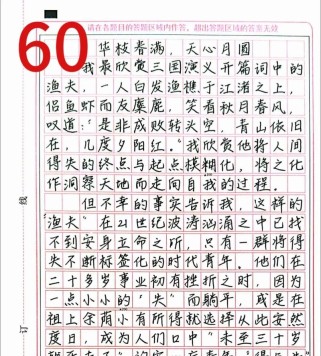 请在各题目的答题区域内作答，超出答题区域的答案无效
60
华枝春满，天心月圆
我最欣赏三国演义开篇词中的
渔夫，一人白发渔樵于江渚之上，
侣鱼虾而友麋鹿，笑看秋月春风，
叹道：“是非成败转头空，青山依旧
在，几度夕阳红。”我欣赏他将人间
得失的终点与起点模糊化，将之化
作洞察天地而走向自我的过程。
但不幸的事实告诉我，这样的
“渔夫”在21世纪波涛汹涌之中已找
不到安身立命之所，只有一群将得
失不断标签化的时代青年。他们在
二十多岁事业初有挫折之时，因为
一点小小的“失”而躺平，或是在
祖上余荫小有所得就选择从此安然
度日，成为人们口中“未至三十岁
线
订